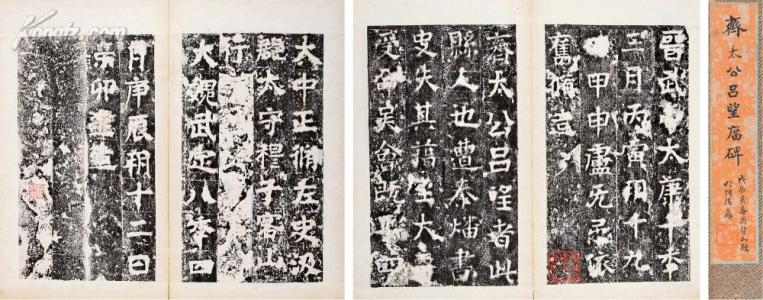 齊太公呂望廟碑
晉武太康十年
三月丙寅朔十九
日甲申盧无忌依
舊脩造
齊太公呂望者此
縣人也遭秦燔書
史失其藉至大晉
受命吳會既平四
大中正脩左史汲
郡太守穆子容山
行
大魏武定八年四
月庚辰朔十二日
辛卯建造